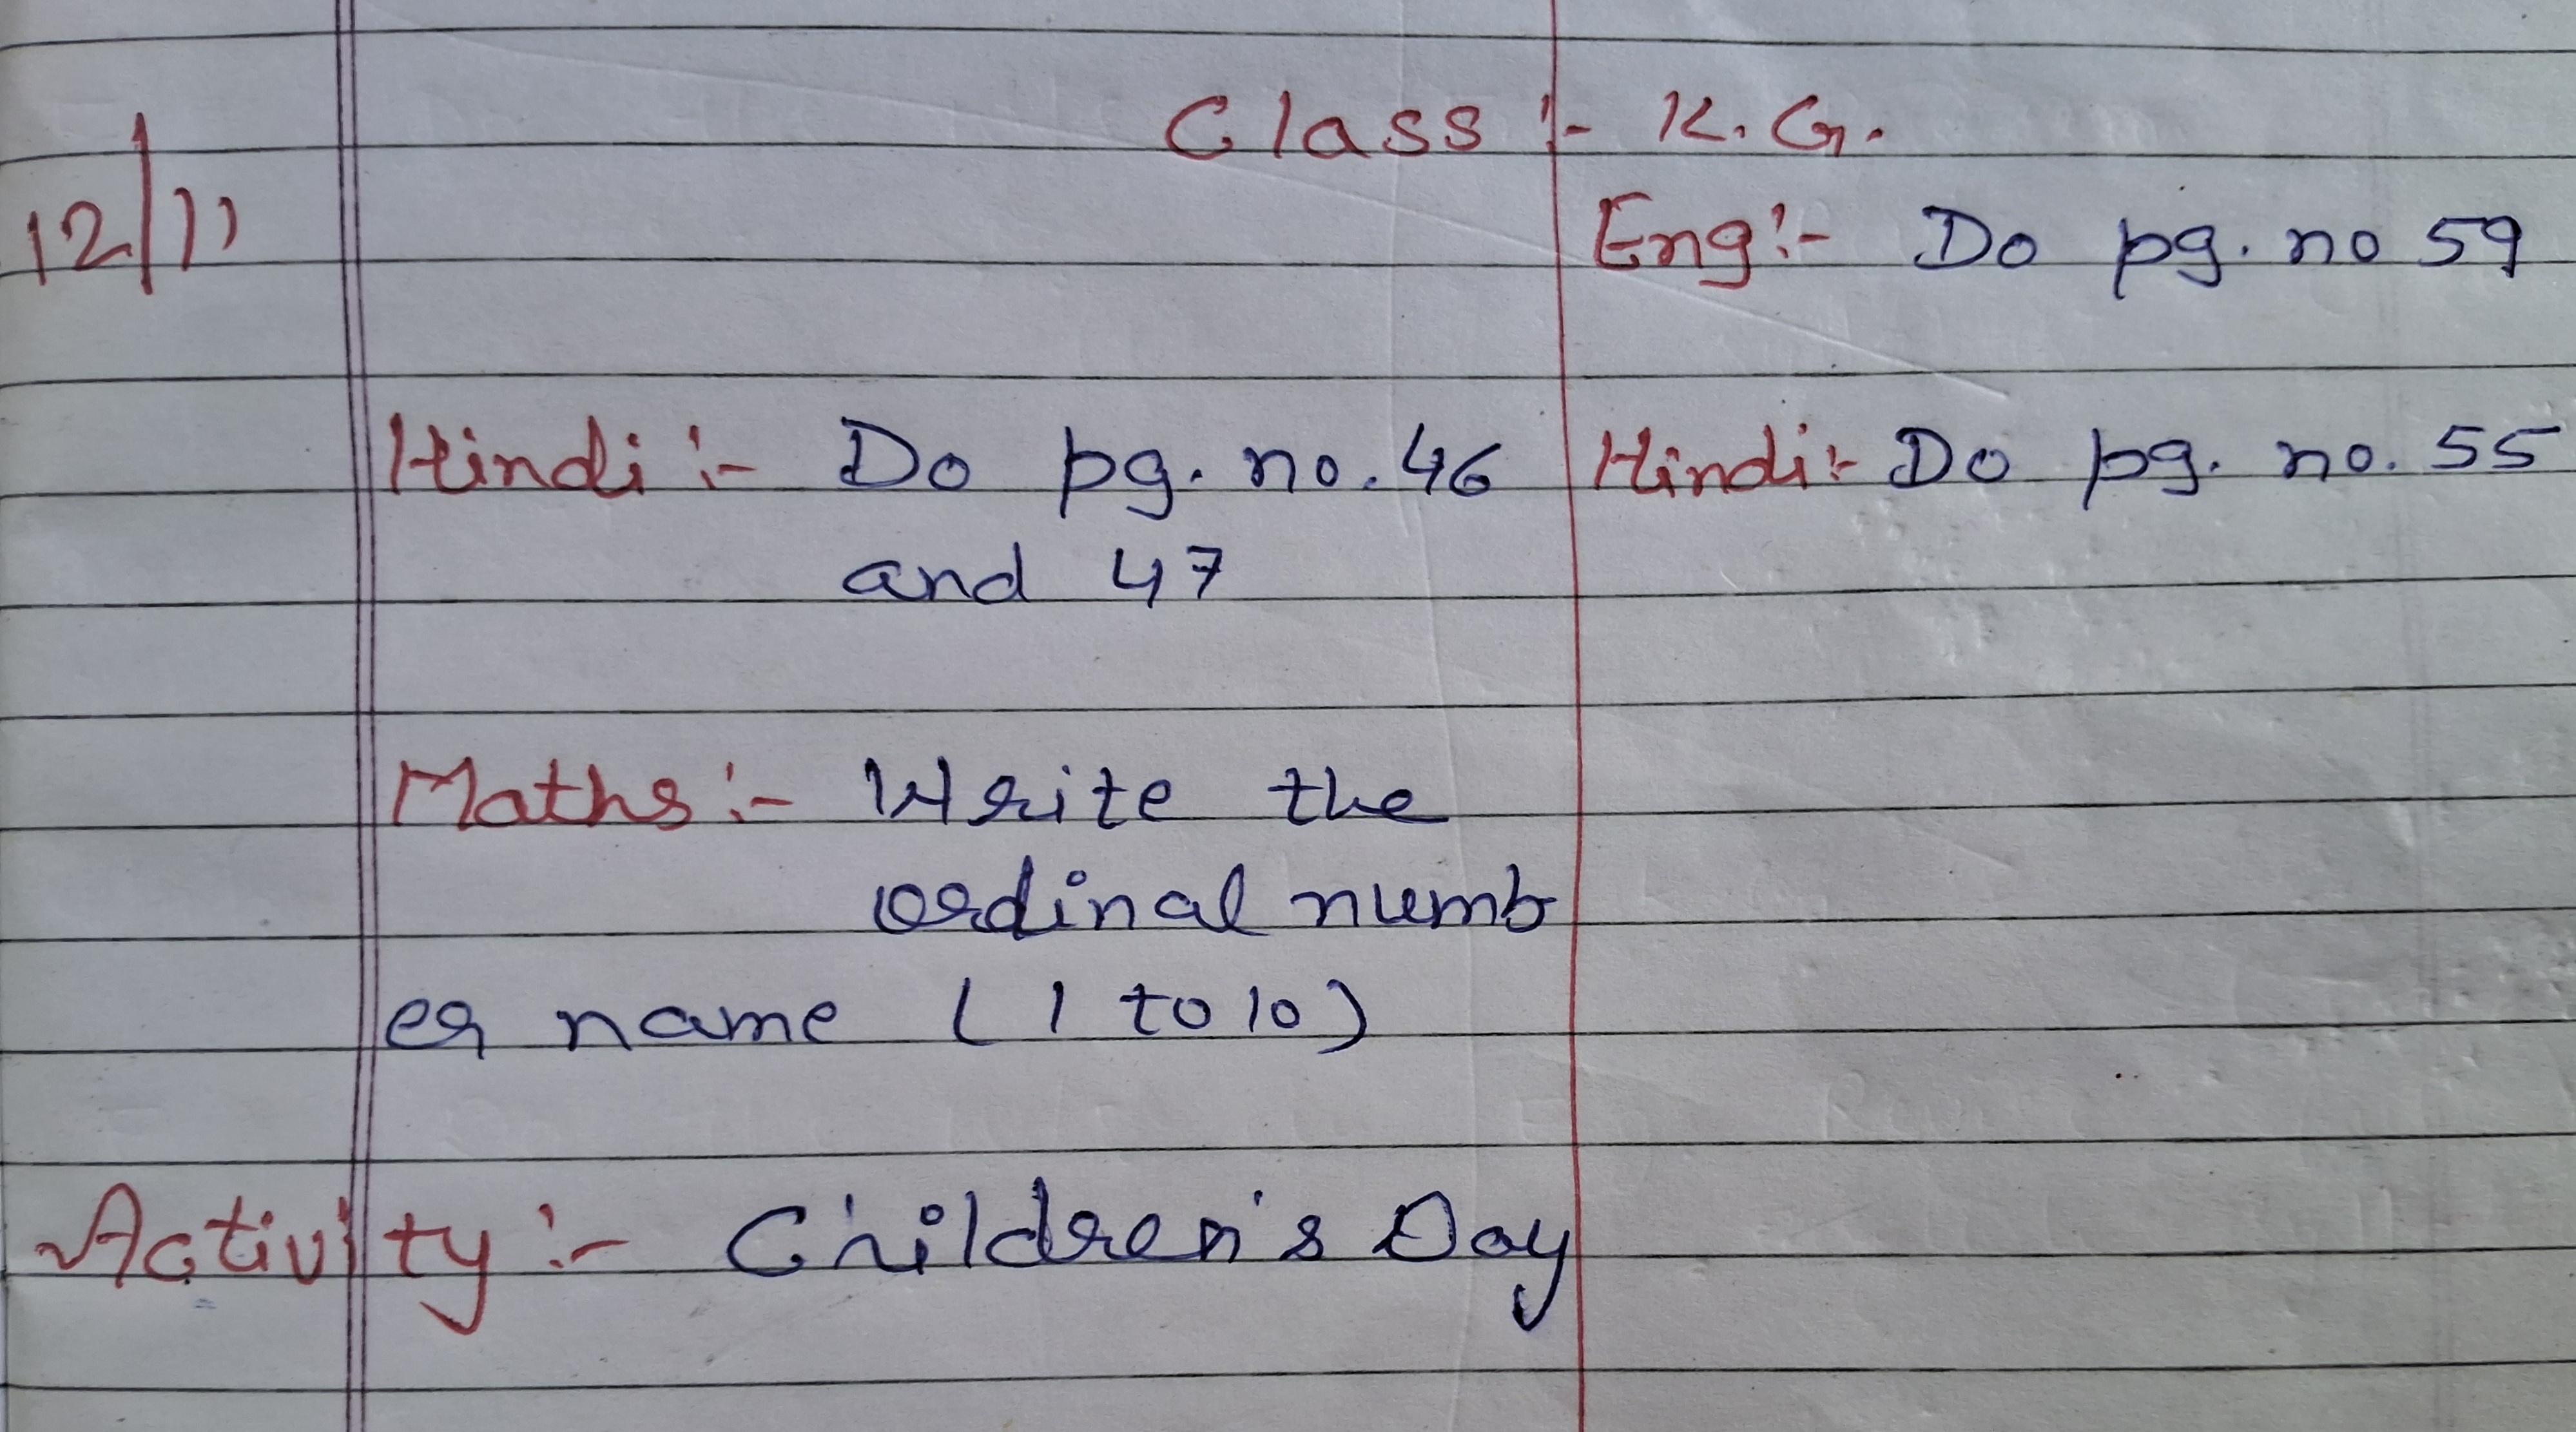 Class :- K.G.
12/11
Hindi :- Do pg. no. 46
and 47
Maths :- Write the
ordinal numb
er name (1 to 10)
Activity :- Children's Day
Eng :- Do pg. no 59
Hindi :- Do pg. no. 55